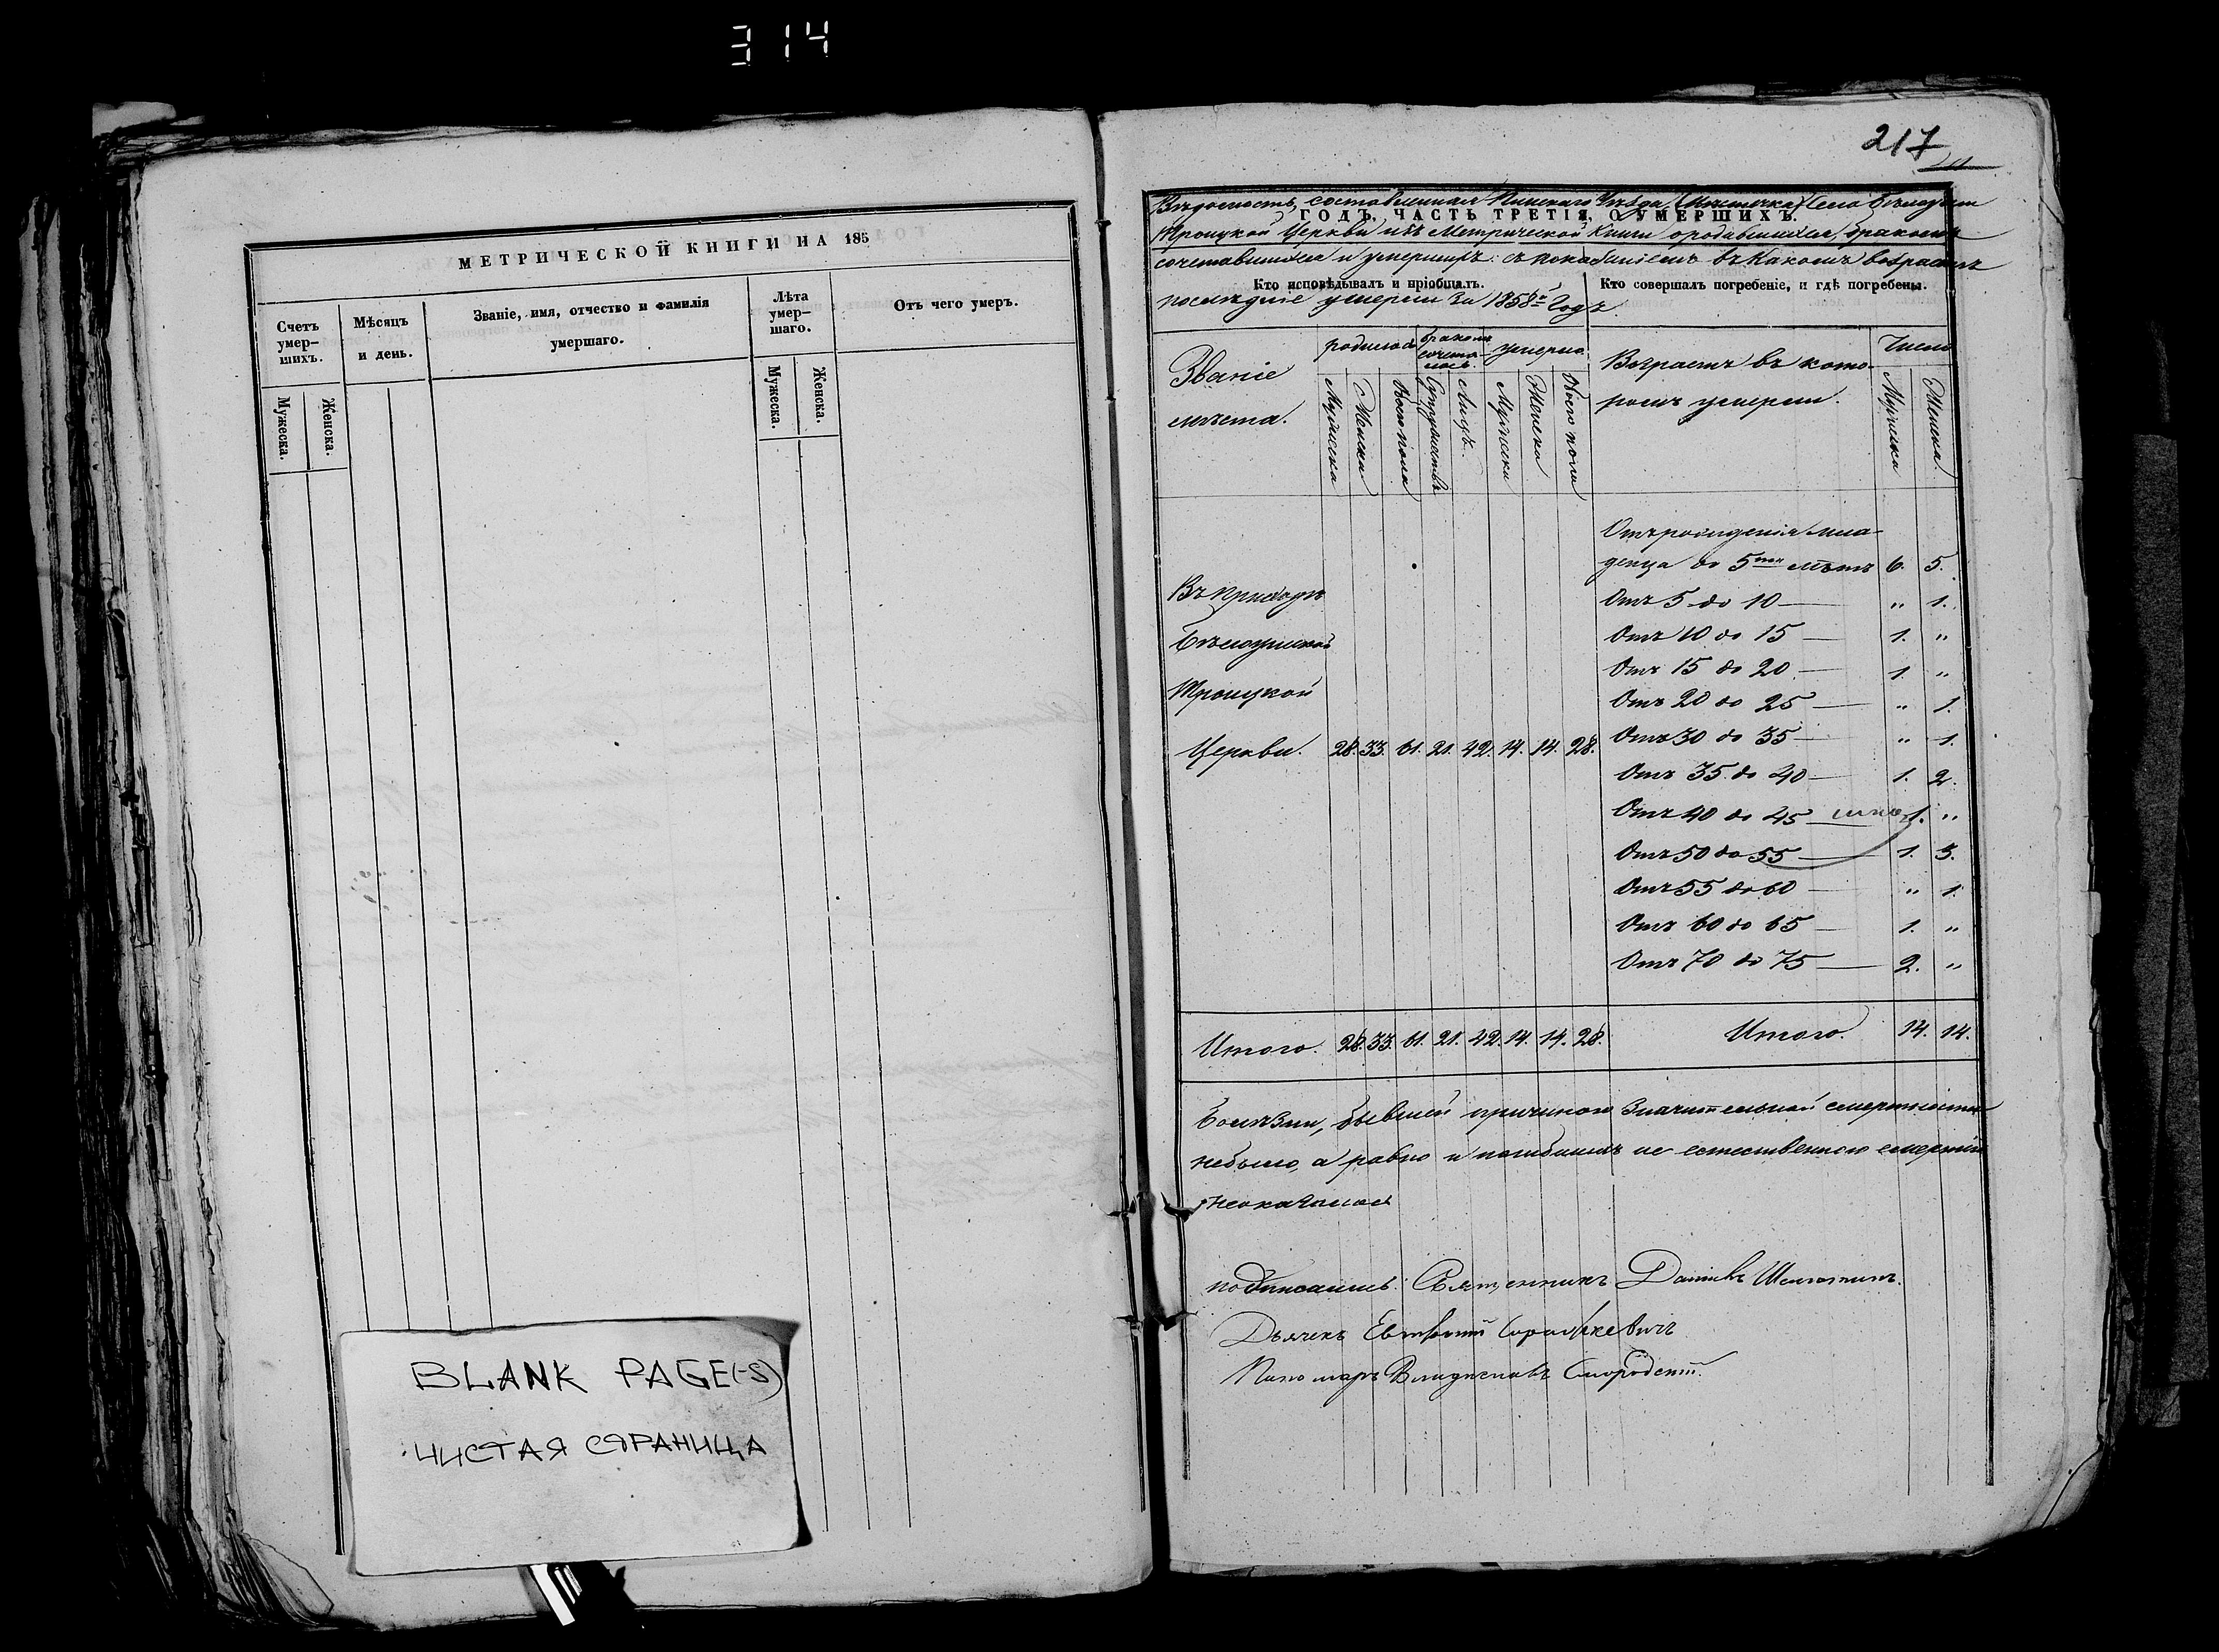 314
МЕТРИЧЕСКОЙ КНИГИ НА 185
Счетъ умер-шихъ.
Мѣсяцъ и день.
Званіе, имя, отчество и фамилія умершаго.
Лѣта умер-шаго.
Отъ чего умеръ.
Мужеска.
Женска.
Мужеска.
Женска.
BLANK PAGE(-S)
ЧИСТАЯ СТРАНИЦА
217
Вѣдомость, составленная Пинскаго Уѣзда, (Мѣстечка) Село
ГОДЪ, ЧАСТЬ ТРЕТІЯ, О УМЕРШИХЪ.
Троицкой Церкви изъ Метрической Книги о родившихся, бракомъ
сочетавшихся и умершихъ: съ показаніемъ въ какомъ возрастѣ
Кто исповѣдывалъ и пріобщалъ.
Кто совершалъ погребеніе, и гдѣ погребены.
послѣдніе умерли за 1858й Годъ.
Званіе мѣста.
родилось
бракомъ сочета-лось.
умерло.
Возрастъ въ кото-
ромъ умерли.
Число
Мужеска
Женска
Обоего пола
Супружествъ
Лицъ.
Мужеска
Женска
Обоего пола
Мужеска
Женска.
Отъ рожденія мла-
денца до 5ти лѣтъ 6. 5.
Въ приходѣ
Отъ 5 до 10 — " 1.
Отъ 10 до 15 — 1. "
Отъ 15 до 20 — 1. "
Троицкой
Отъ 20 до 25 — " 1.
Церкви. 28. 33. 61. 21. 42. 14. 14. 28.
Отъ 30 до 35 — " 1.
Отъ 35 до 40 — 1. 2.
Отъ 40 до 45 — 1. "
Отъ 50 до 55 — 1. 3.
Отъ 55 до 60 — " 1.
Отъ 60 до 65 — 1. "
Отъ 70 до 75 — 2. "
Итого. 28. 33. 61. 21. 42. 14. 14. 28. Итого. 14. 14.
Болѣзни, бывшей причиною значительной смертности
небыло, а равно и погибшихъ не естественною смертію
неоказалось
подписались: Священникъ Даніилъ
Дьячекъ
Пономарь